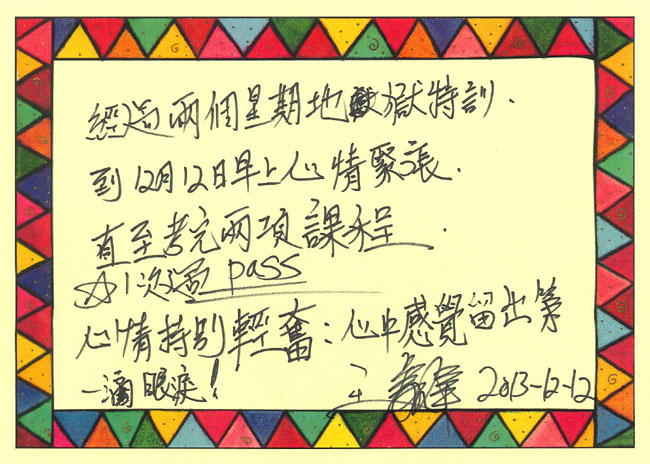 經過兩個星期地獄特訓.
到12月12日早上心情緊張.
直至考完兩項課程.
☆1次過 pass
心情特別輕奮：心中感覺留出第
一滴眼淚！
2013-12-12